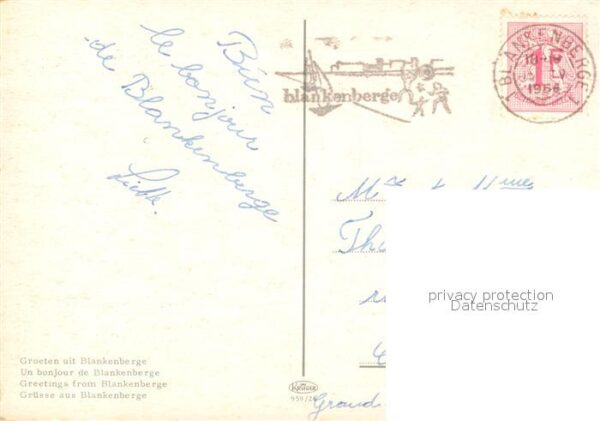 Bien
le bonjour
de Blankenberge
blankenberge
BLANKENBERGE
1966
1F
Mr & Mme
privacy protection
Datenschutz
Groeten uit Blankenberge
Un bonjour de Blankenberge
Greetings from Blankenberge
Grüsse aus Blankenberge
KRÜGER
Grand